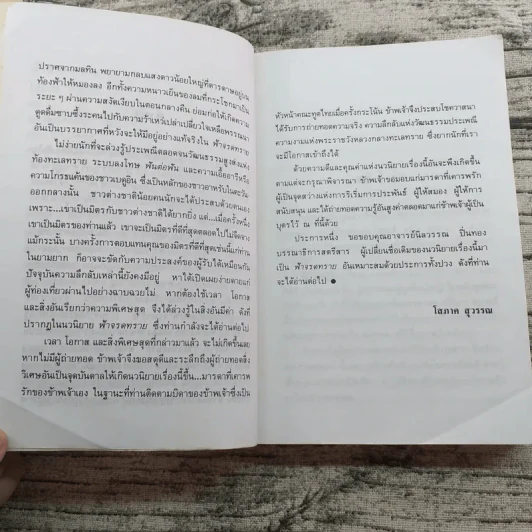 ปราศจากมลทิน พยายามกลบแสงดาวน้อยใหญ่ที่ดารดาษอยู่บน
ท้องฟ้าให้หมองลง อีกทั้งความหนาวเย็นของลมที่กระโชกมาเป็น
ระยะ ๆ ผ่านความสงัดเงียบในตอนกลางคืน ย่อมก่อให้เกิดความ
ดูดดื่มซาบซึ้งระคนไปกับความว้าเหว่เปล่าเปลี่ยวใจเหลือพรรณนา
อันเป็นบรรยากาศที่หวังจะให้มีอยู่อย่างแท้จริงใน ฟ้าจรดทราย
ไม่ง่ายนักที่จะล่วงรู้ประเพณีตลอดจนวัฒนธรรมสูงส่งแห่ง
ท้องทะเลทราย ระบบลงโทษ ฟันต่อฟัน และความเอื้ออารีหรือ
ความโกรธแค้นของชาวเบดูอิน ซึ่งเป็นหลักของชาวอาหรับในตะวัน
ออกกลางนั้น ชาวต่างชาติน้อยคนนักจะได้ประสบด้วยตนเอง
เพราะ...เขาเป็นมิตรกับชาวต่างชาติได้ยากยิ่ง แต่...เมื่อครั้งหนึ่ง
เขาเป็นมิตรของท่านแล้ว เขาจะเป็นมิตรที่ดีที่สุดตลอดไปไม่จืดจาง
แม้กระนั้น บางครั้งการตอบแทนคุณของมิตรที่ดีที่สุดเช่นนี้แก่ท่าน
ในยามยาก ก็อาจจะขัดกับความประสงค์ของผู้รับได้เหมือนกัน
ปัจจุบันความลึกลับเหล่านี้ยังคงมีอยู่ หาได้เปิดเผยง่ายดายแก่
ผู้ท่องเที่ยวผ่านไปอย่างฉาบฉวยไม่ หากต้องใช้เวลา โอกาส
และสิ่งอันเรียกว่าความพิเศษสุด จึงได้ล่วงรู้ในสิ่งอันมีค่า ดังที่
ปรากฏในนวนิยาย ฟ้าจรดทราย ซึ่งท่านกำลังจะได้อ่านต่อไป
เวลา โอกาส และสิ่งพิเศษสุดที่กล่าวมาแล้ว จะไม่เกิดขึ้นเลย
หากไม่มีผู้ถ่ายทอด ข้าพเจ้าจึงขอสดุดีและระลึกถึงผู้ถ่ายทอดสิ่ง
วิเศษอันเป็นจุดบันดาลให้เกิดนวนิยายเรื่องนี้ขึ้น...มารดาที่เคารพ
รักของข้าพเจ้าเอง ในฐานะที่ท่านติดตามบิดาของข้าพเจ้าซึ่งเป็น
หัวหน้าคณะทูตไทยเมื่อครั้งกระโน้น ข้าพเจ้าจึงประสบโชควาสนา
ได้รับการถ่ายทอดความจริง ความลึกลับแห่งวัฒนธรรมประเพณี
ความงามแห่งพระราชวังหลวงกลางทะเลทราย ซึ่งยากนักที่เรา
จะมีโอกาสเข้าถึงได้
ด้วยความดีและคุณค่าแห่งนวนิยายเรื่องนี้อันจะพึงเกิดขึ้น
ตามแต่จะกรุณาพิจารณา ข้าพเจ้าขอมอบแก่มารดาที่เคารพรัก
ผู้เป็นจุดสว่างแห่งการริเริ่มการประพันธ์ ผู้ให้สมอง ผู้ให้การ
สนับสนุน และได้ถ่ายทอดความรู้อันสูงค่าตลอดมาแก่ข้าพเจ้าผู้เป็น
บุตรไว้ ณ ที่นี้ด้วย
ประการหนึ่ง ขอขอบคุณอาจารย์นิลวรรณ ปิ่นทอง
บรรณาธิการสตรีสาร ผู้เปลี่ยนชื่อเดิมของนวนิยายเรื่องนี้มา
เป็น ฟ้าจรดทราย อันเหมาะสมด้วยประการทั้งปวง ดังที่ท่าน
จะได้อ่านต่อไป ●
โสภาค สุวรรณ